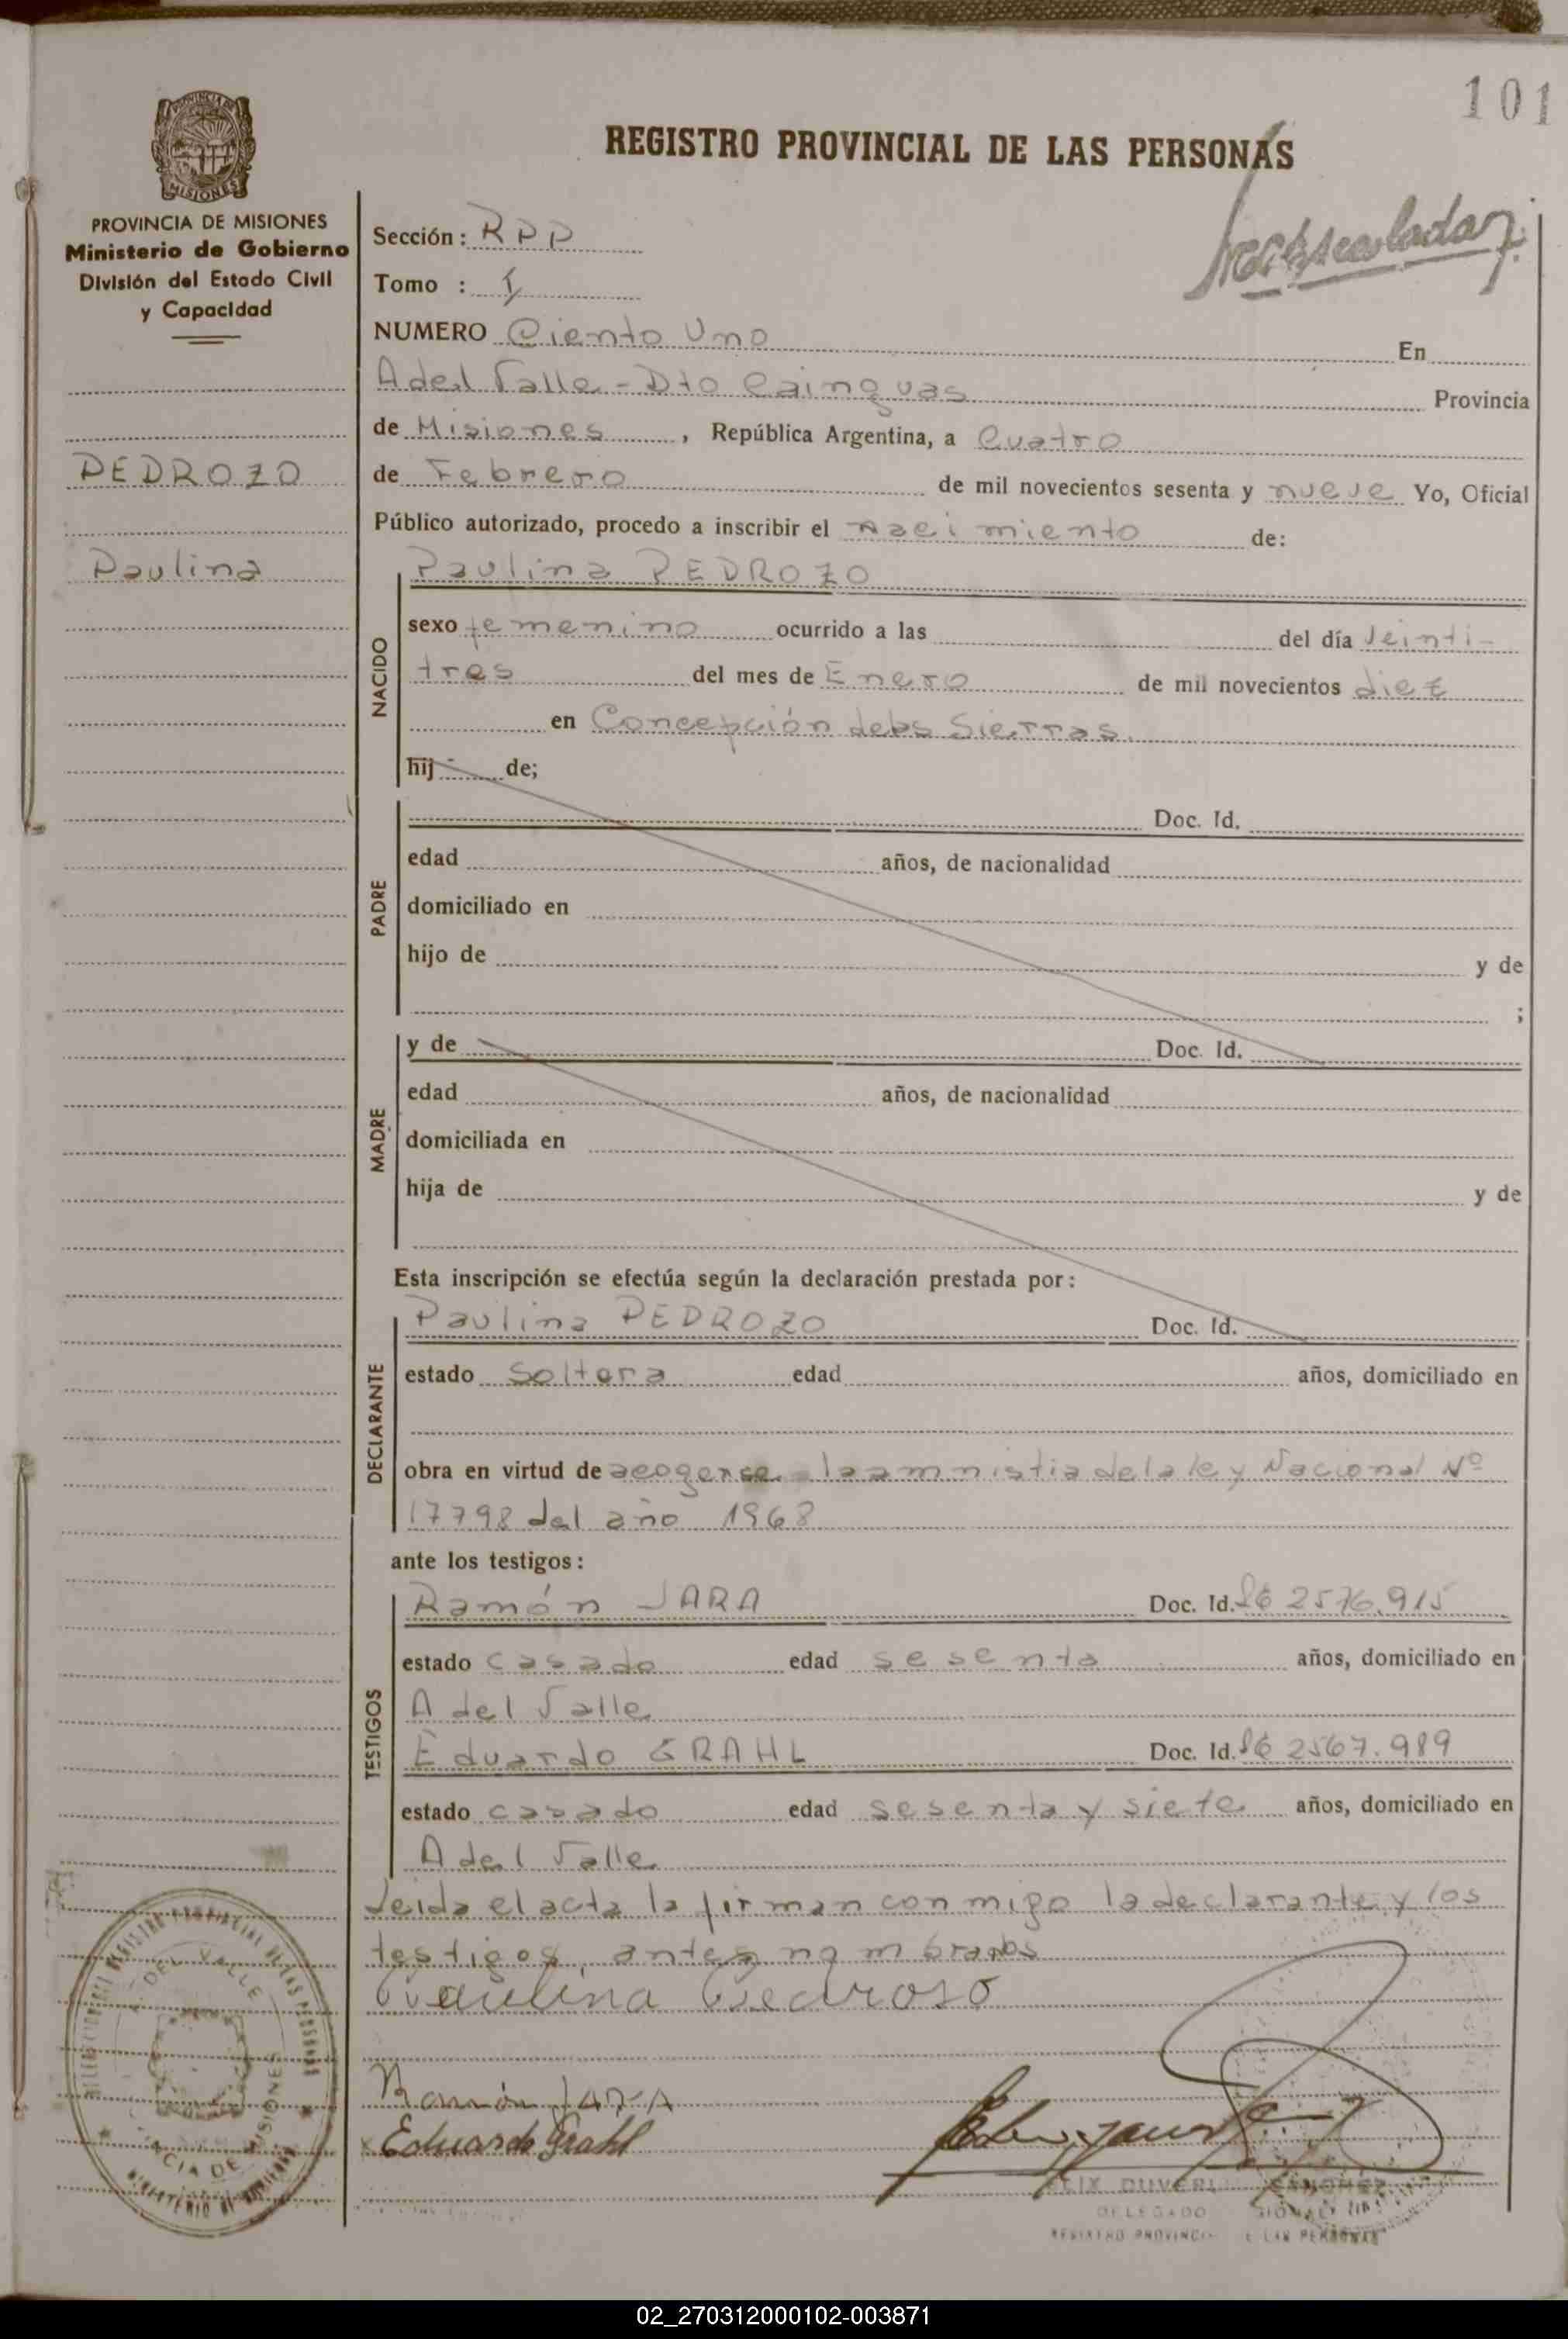 101
REGISTRO PROVINCIAL DE LAS PERSONAS
MISIONES
PROVINCIA DE MISIONES
Ministerio de Gobierno
División del Estado Civil
y Capacidad
PEDROZO
Paulina
Sección: RPP
Tomo : I
NUMERO Ciento Uno En
A del Valle - Dto Cainguas Provincia
de Misiones, República Argentina, a Cuatro
de Febrero de mil novecientos sesenta y nueve Yo, Oficial
Público autorizado, procedo a inscribir el Nacimiento de:
NACIDO
Paulina PEDROZO
sexo femenino ocurrido a las del día Veinti-
tres del mes de Enero de mil novecientos diez
en Concepción de las Sierras.
hij de;
PADRE
Doc. Id.
edad años, de nacionalidad
domiciliado en
hijo de y de
;
MADRE
y de Doc. Id.
edad años, de nacionalidad
domiciliada en
hija de y de
Esta inscripción se efectúa según la declaración prestada por:
DECLARANTE
Paulina PEDROZO Doc. Id.
estado Soltera edad años, domiciliado en
obra en virtud de acogerse a la amnistia de la ley Nacional Nº
17798 del año 1968
ante los testigos:
TESTIGOS
Ramón JARA Doc. Id. 2576.915
estado casado edad sesenta años, domiciliado en
A del Valle
Eduardo GRAHL Doc. Id. 2567.989
estado casado edad sesenta y siete años, domiciliado en
A del Valle
Leida el acta la firman con migo la declarante y los
testigos, antes nombrados
Paulina Pedroso
Ramón JARA
Eduardo Grahl
DEL VALLE
DELEGADO
REGISTRO PROVINCI E LAS PERSONAS
02_270312000102-003871